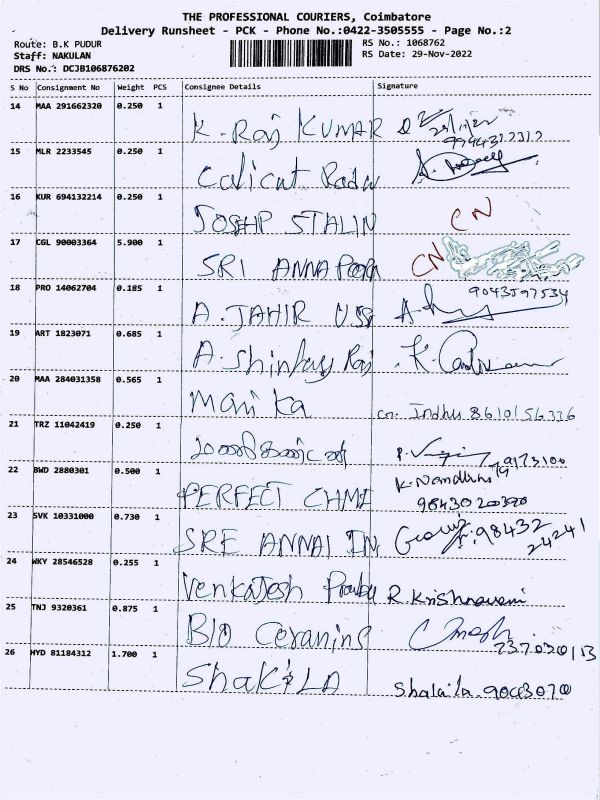 THE PROFESSIONAL COURIERS, Coimbatore
Delivery Runsheet - PCK - Phone No.:0422-3505555 - Page No.:2
Route: B.K PUDUR
RS No.: 1068762
Staff: NAKULAN
RS Date: 29-Nov-2022
DRS No.: DCJB106876202
S No Consignment No Weight PCS Consignee Details Signature
14 MAA 291662320 0.250 1 K. Raj KUMAR
15 MLR 2233545 0.250 1 Calicut
16 KUR 694132214 0.250 1 JOSEHP STALIN CN
17 CGL 90003364 5.900 1 SRI ANNA CN
18 PRO 14062704 0.185 1 A. JAHIR 9043597534
19 ART 1823071 0.685 1 A. Raj K.
20 MAA 284031358 0.565 1 Mani ka Indhu 8610156336
21 TRZ 11042419 0.250 1 மணிகண்டன்
22 BWD 2880301 0.500 1 PERFECT K. Nandhini
23 SVK 10331000 0.730 1 SRE ANNAI IN 98432
24241
24 WKY 28546528 0.255 1 Venkatesh Prabu R. Krishnaveni
25 TNJ 9320361 0.875 1 BIO
26 HYD 81184312 1.700 1 SHAKILA